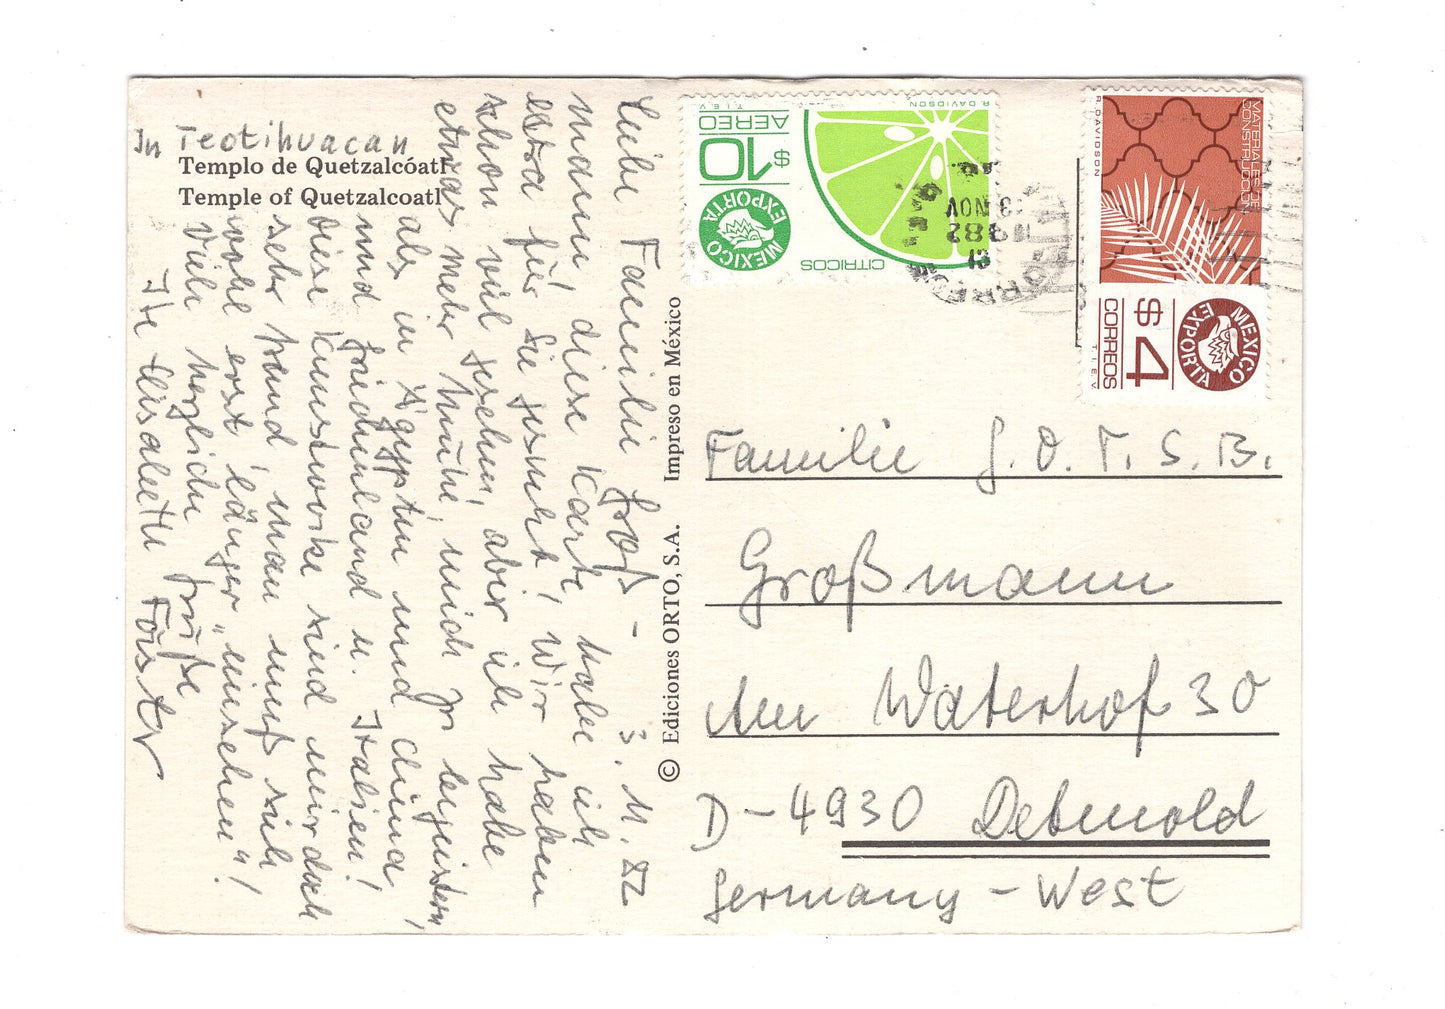 In Teotihuacan
Templo de Quetzalcóatl
Temple of Quetzalcoatl
3. 11. 82
Liebe Familie Groß-
mann, diese Karte habe ich
extra für Sie gesucht! Wir haben
schon viel gesehen, aber ich habe
etwas mehr Mühe, mich zu begeistern,
als in Ägypten und China
und Griechenland u. Italien!
Diese Kunstwerke sind mir doch
sehr fremd, man muß sich
wohl erst länger "einsehen"!
Viele herzliche Grüße
Ihre Elisabeth Förster
© Ediciones ORTO, S.A. Impreso en México
T.I.E.V. R. DAVIDSON
AEREO
$10
MEXICO EXPORTA
CITRICOS
R. DAVIDSON
MATERIALES DE
CONSTRUCCION
MEXICO EXPORTA
$4
CORREOS
T.I.E.V.
NOV
1982
Familie G. O. T. S. B.
Großmann
Am Waterhof 30
D-4930 Detmold
Germany - West